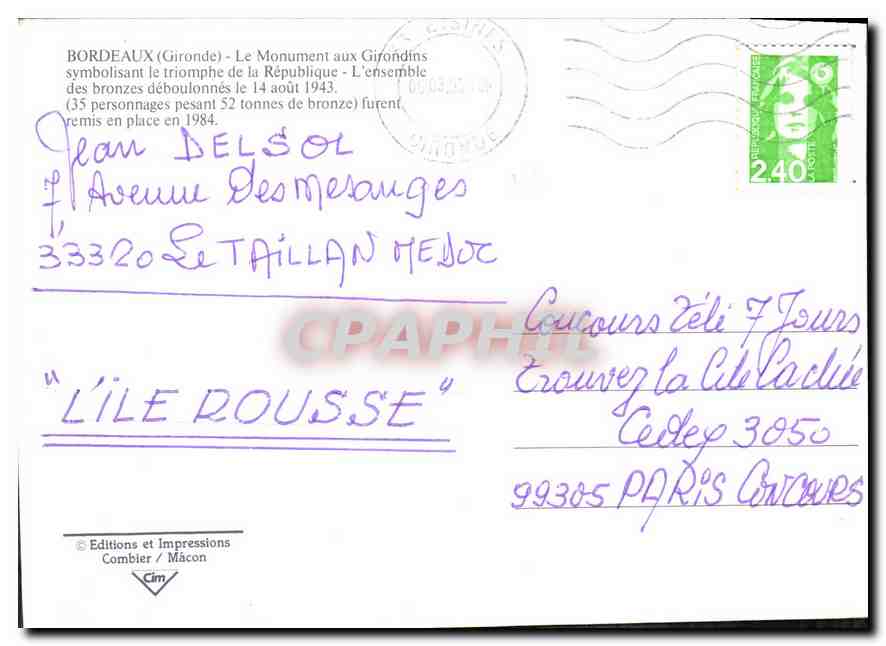 BORDEAUX (Gironde) - Le Monument aux Girondins
symbolisant le triomphe de la République - L'ensemble
des bronzes déboulonnés le 14 août 1943.
(35 personnages pesant 52 tonnes de bronze) furent
remis en place en 1984.
Jean DELSOL
7, Avenue Des Mesanges
33320 Le TAILLAN MEDOC
"L'ÎLE ROUSSE"
© Editions et Impressions
Combier / Mâcon
Cim
GIRONDE
REPUBLIQUE FRANÇAISE
2,40
LA POSTE
Concours Télé 7 Jours
Trouvez la Cité Cachée
Cedex 3050
99305 PARIS CONCOURS
CPAPHIL